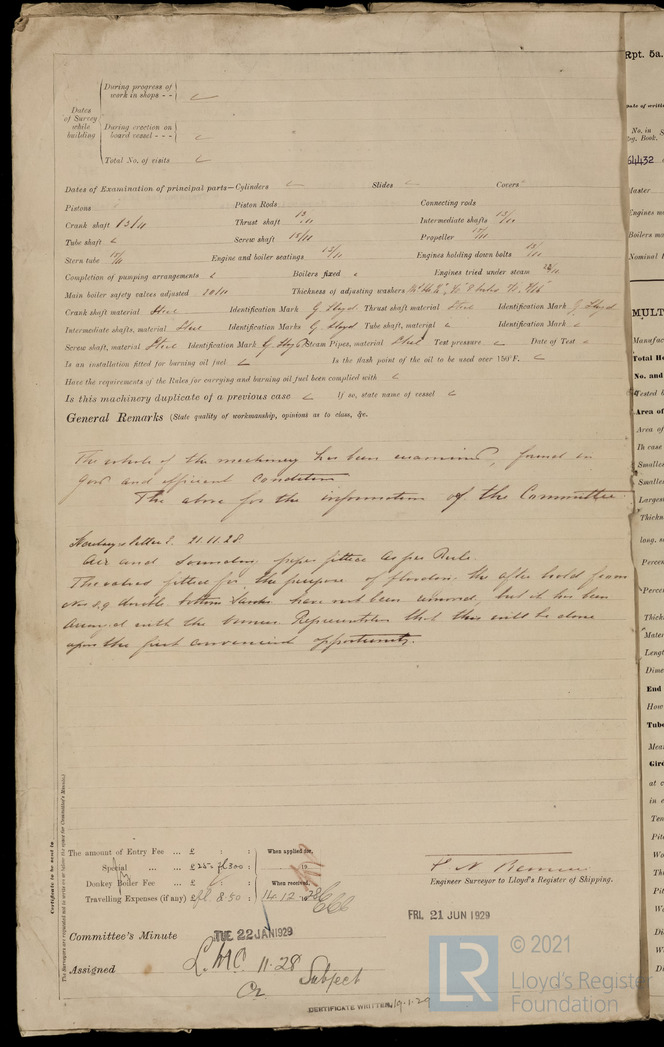 During progress of
work in shops - -
Dates
of Survey
while
building
During erection on
board vessel - - -
Total No. of visits
Dates of Examination of principal parts—Cylinders Slides Covers
Pistons Piston Rods Connecting rods
Crank shaft 13/11 Thrust shaft 13/11 Intermediate shafts 13/11
Tube shaft Screw shaft 15/11 Propeller 17/11
Stern tube 17/11 Engine and boiler seatings 13/11 Engines holding down bolts
Completion of pumping arrangements Boilers fixed Engines tried under steam
Main boiler safety valves adjusted 20/11 Thickness of adjusting washers
Crank shaft material Steel Identification Mark G. Lloyd Thrust shaft material Steel Identification Mark G. Lloyd
Intermediate shafts, material Steel Identification Marks G. Lloyd Tube shaft, material Identification Mark
Screw shaft, material Steel Identification Mark Steam Pipes, material Steel Test pressure Date of Test
Is an installation fitted for burning oil fuel Is the flash point of the oil to be used over 150°F.
Have the requirements of the Rules for carrying and burning oil fuel been complied with
Is this machinery duplicate of a previous case If so, state name of vessel
General Remarks (State quality of workmanship, opinions as to class, &c.
The whole of the machinery has been examined, found in
good and efficient condition
The above for the information of the Committee.
Secretary's letter 21.11.28
Air and sounding pipes fitted as per Rule.
The valves fitted for the purpose of flooding the after hold from
double bottom tanks have not been removed, but it has been
arranged with the Owners Representative that this will be done
upon the first convenient opportunity.
Certificate to be sent to
The Surveyors are requested not to write on or below the space for Committee's Minute.
The amount of Entry Fee ... £ : : When applied for,
Special ... ... £ : 19
Donkey Boiler Fee ... £ : : When received,
Travelling Expenses (if any) £ fl. 8.50 : 14.12.1928
Engineer Surveyor to Lloyd's Register of Shipping.
FRI. 21 JUN 1929
Committee's Minute TUE 22 JAN 1929
Assigned L.M.C. 11.28
Subject
CERTIFICATE WRITTEN 19.1.29
Rpt. 5a.
No. in
64432
Master
Engines
Boilers
Nominal
MULT
Total
No. and
Area of
Area of
In case
Smalles
Smalles
Larges
Thickn
long.
Percen
Percen
Thick
Mater
Lengt
Dime
End
How
Tube
Mea
Gir
at c
in
Ten
Pit
Wo
Th
Pit
W
Di
W
Di
© 2021
LR
Lloyd's Register
Foundation